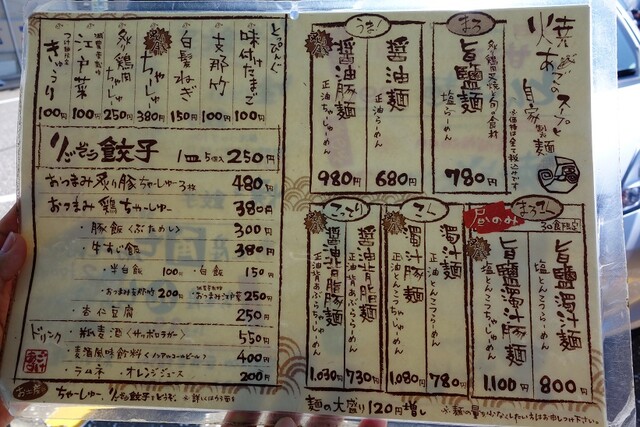 焼あごのスープと
自家製麺
※価格は全て税込みです
まろ
旨鹽麺
炙り鶏叉焼と旬の食材
塩らーめん
780円
うまく
醤油麺
正油らーめん
680円
醤油豚麺
正油ちゃーしゅーめん
980円
昼のみ
まろてん
30食限定
旨鹽濁汁麺
塩とんこつらーめん
800円
旨鹽濁汁豚麺
塩とんこつちゃーしゅーめん
1,100円
こてん
濁汁麺
正油とんこつらーめん
780円
濁汁豚麺
正油とんこつちゃーしゅーめん
1,080円
こってり
醤油背脂麺
正油背あぶららーめん
730円
醤油背脂豚麺
正油背あぶらちゃーしゅーめん
1,030円
麺の大盛り120円増し
※麺の量を少なくしたい方はお申し付け下さい。
とっぴんぐ
味付けたまご
100円
支那竹
100円
白髪ねぎ
150円
ちゃーしゅー
380円
炙り鶏肉ちゃーしゅー
250円
江戸菜
100円
きゅうり
100円
餃子 1皿 5個入 250円
おつまみ炙り豚ちゃーしゅー3枚 480円
おつまみ鶏ちゃーしゅー 380円
・豚飯〈ぶためし〉 300円
・牛すじ飯 380円
・半白飯 100円 ・白飯 150円
・おつまみ支那竹 200円 ・おつまみ江戸菜 250円
・杏仁豆腐 250円
ドリンク ・瓶麦酒〈サッポロラガー〉 550円
・麦酒風味飲料〈ノンアルコールビール〉 400円
・ラムネ ・オレンジジュース 200円
ちゃーしゅー、餃子をどうぞ。